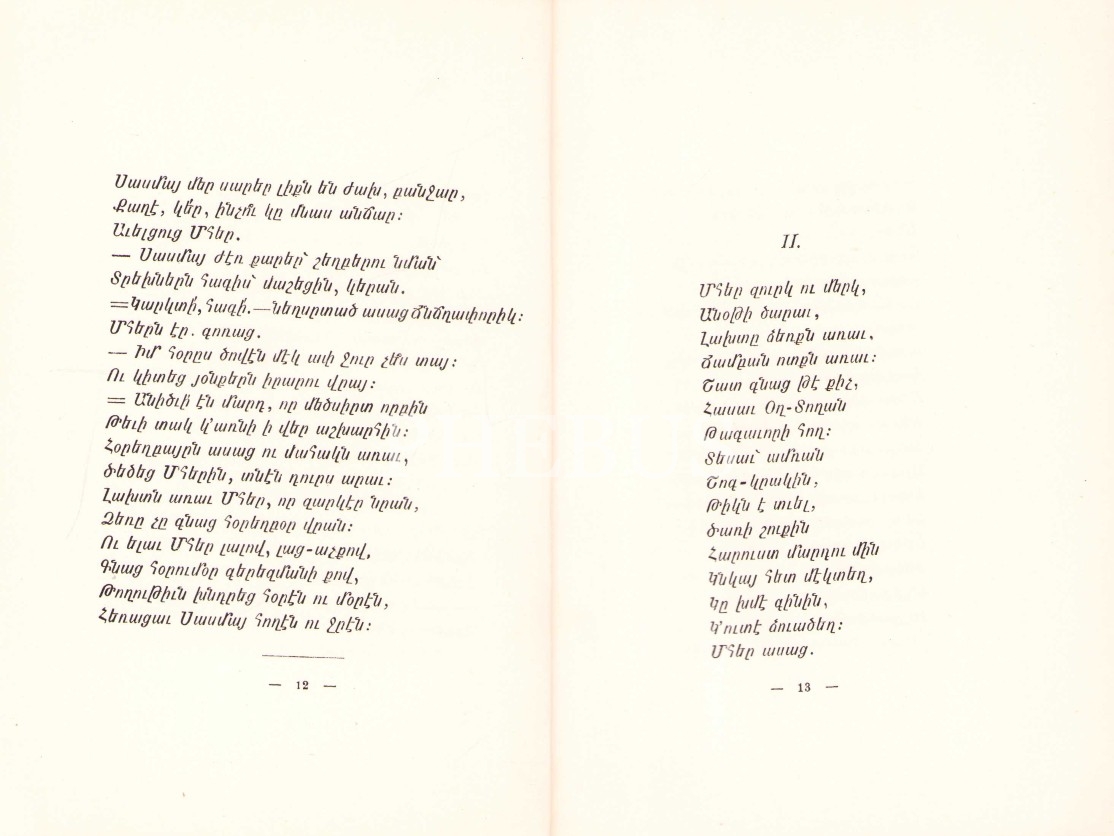 Սասմայ մեր սարեր լիքն են ժախ, բանջար,
Քաղէ, կե՛ր, ինչո՞ւ կը մնաս անճար։
Աւելցուց Մհեր.
— Սասմայ ժէռ քարեր՝ շեղբերու նման՝
Տրեխներն հագիս՝ մաշեցին, կերան.
=Կարկտի՛, հագի՛.—նեղսրտած ասաց Ճնճղափորիկ։
Մհերն էր. գոռաց.
— Իմ հօրըս ծովէն մէկ ափ ջուր չե՞ս տայ։
Ու կիտեց յօնքերն իրարու վրայ։
= Անիծուի՛ էն մարդ, որ մեծսիրտ որբին
Թեւի տակ կ՚առնի ի վեր աշխարհին։
Հօրեղբայրն ասաց ու մահակն առաւ,
Ծեծեց Մհերին, տնէն դուրս արաւ։
Լախտն առաւ Մհեր, որ զարկէր նրան,
Ձեռը չը գնաց հօրեղբօր վրան։
Ու ելաւ Մհեր լալով, լաց-աչքով,
Գնաց հօրումօր գերեզմանի քով,
Թողութիւն խնդրեց հօրէն ու մօրէն,
Հեռացաւ Սասմայ հողէն ու ջրէն։
— 12 —
II.
Մհեր զուրկ ու մերկ,
Անօթի ծարաւ,
Լախտը ձեռքն առաւ,
Ճամբան ոտքն առաւ։
Շատ գնաց թէ քիչ,
Հասաւ Օղ-Տողան
Թագաւորի հող։
Տեսաւ՝ ամռան
Շոգ-կրակին,
Թիկն է տուել,
Ծառի շուքին
Հարուստ մարդու մին
Կնկայ հետ մէկտեղ,
Կը խմէ գինին,
Կ՚ուտէ ձուածեղ։
Մհեր ասաց.
— 13 —